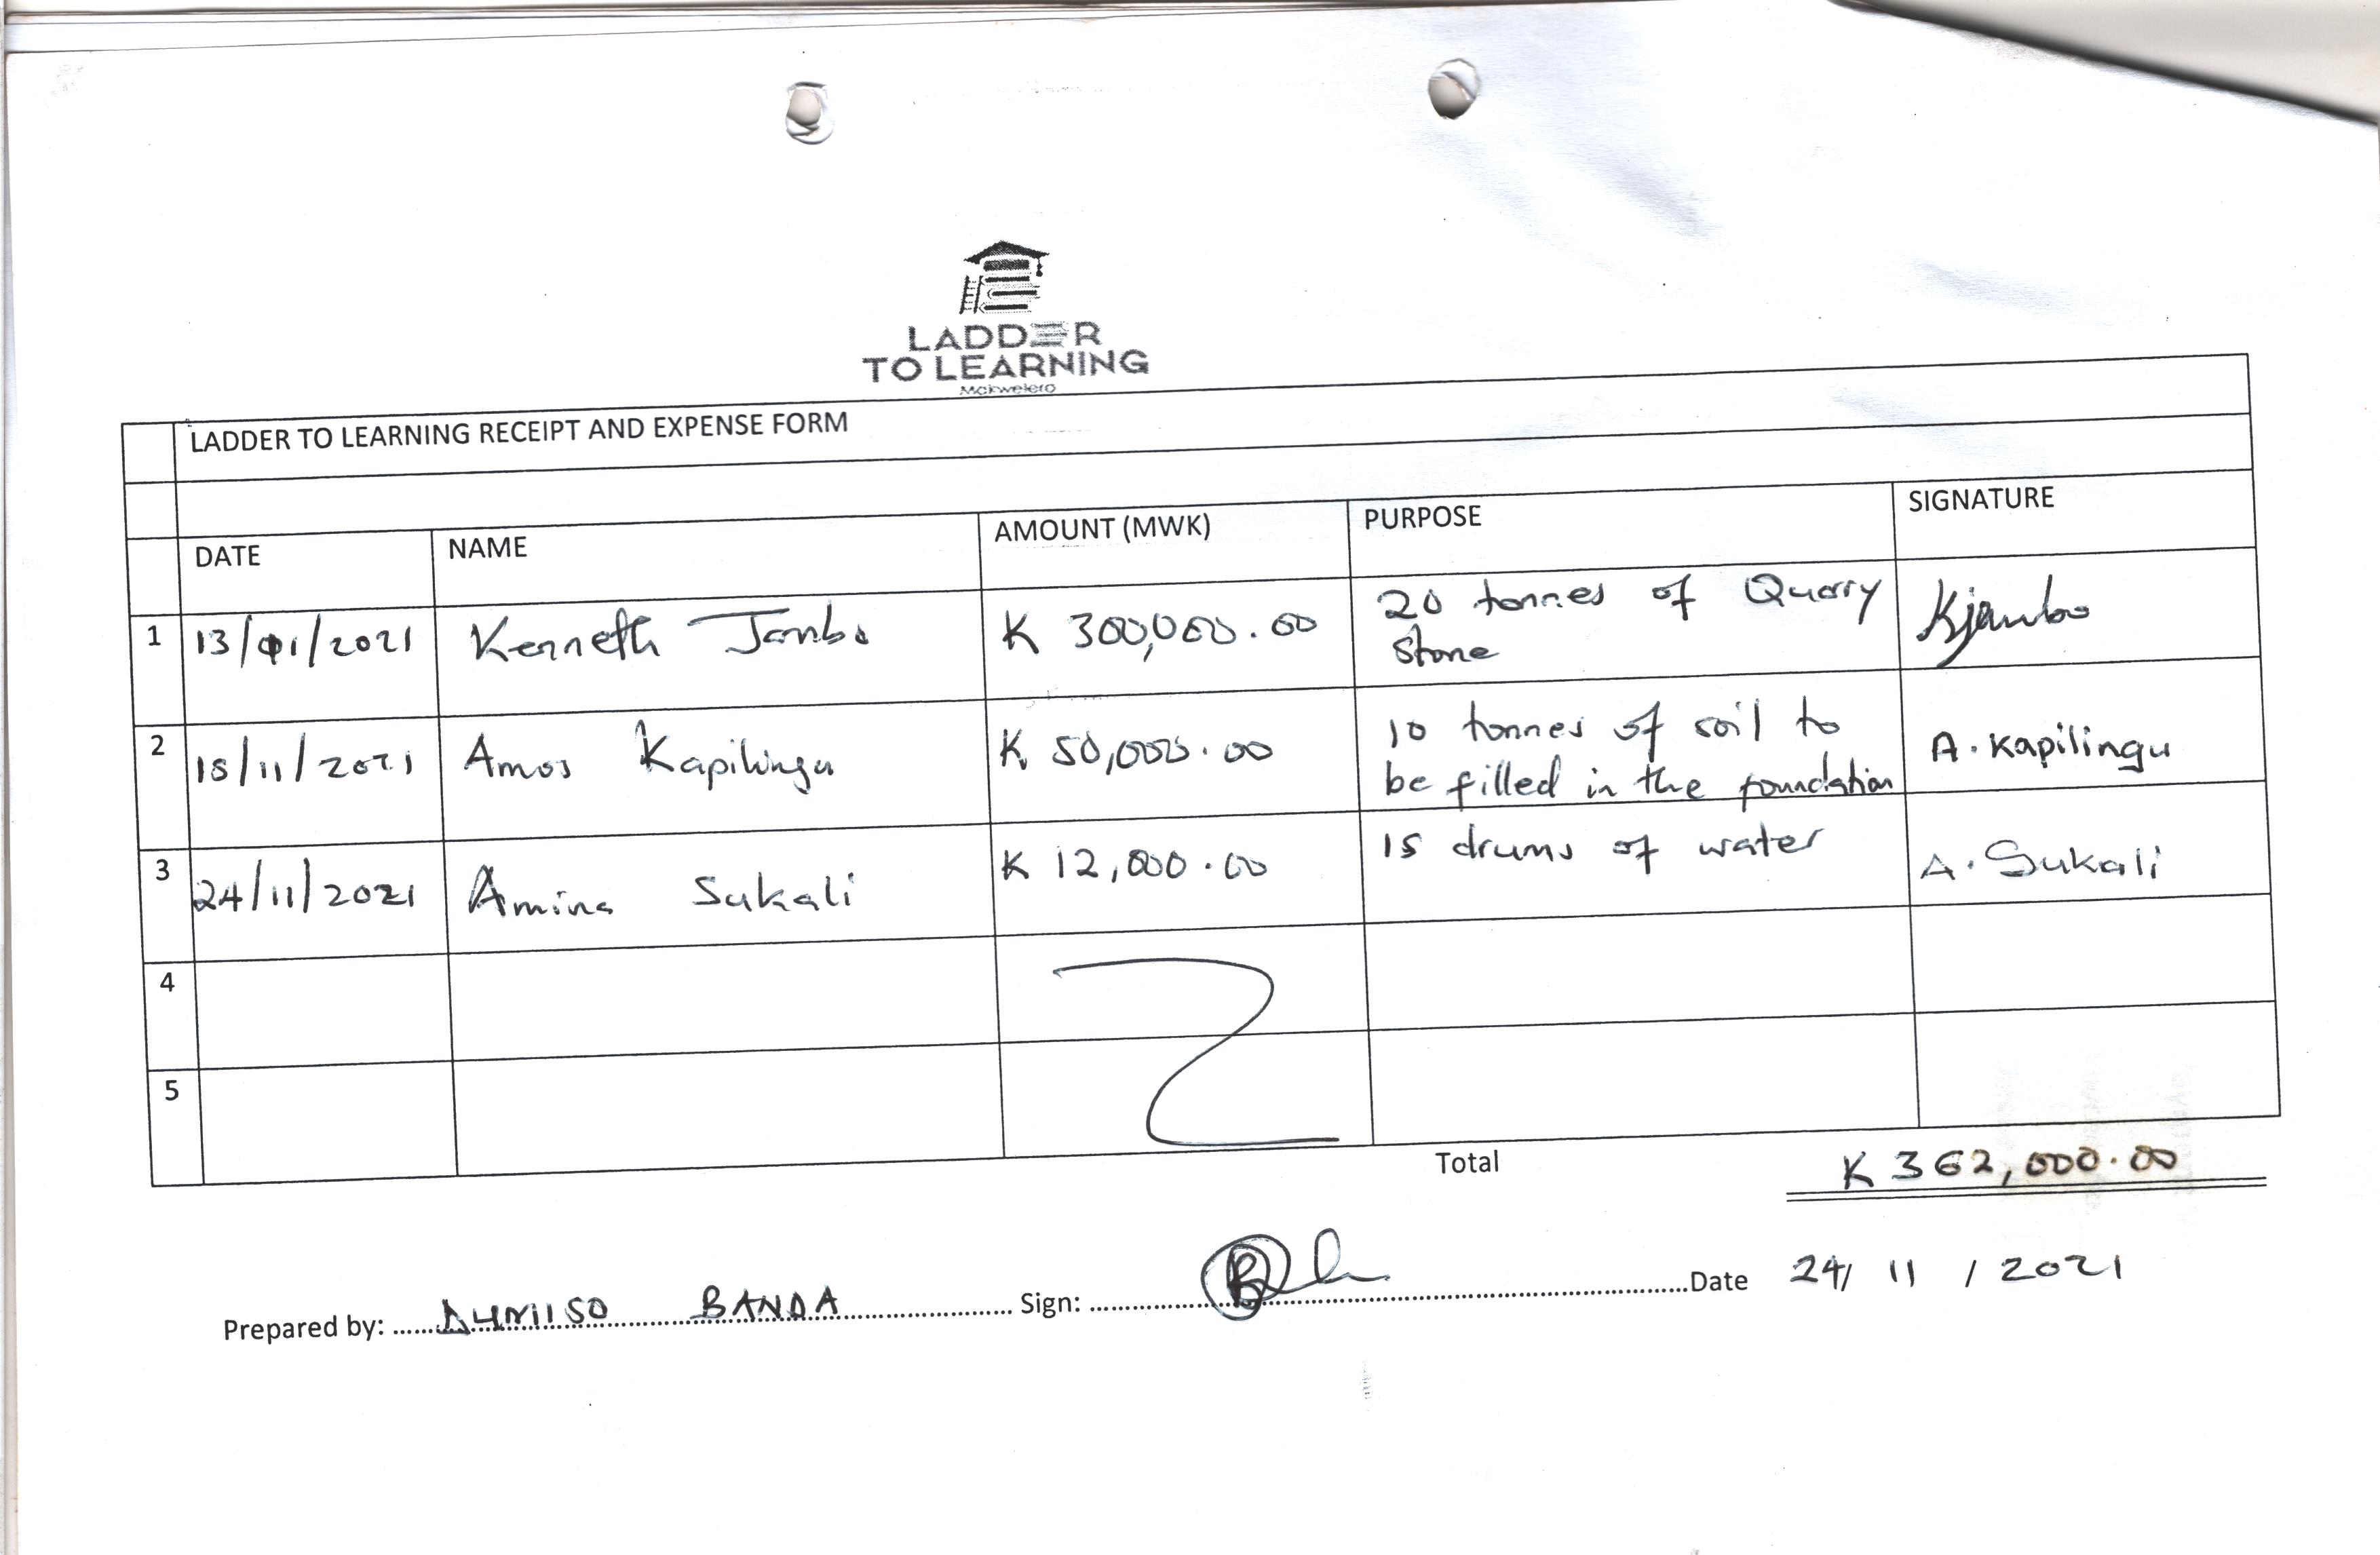 LADDER
TO LEARNING
Mckwelero
LADDER TO LEARNING RECEIPT AND EXPENSE FORM
DATE NAME AMOUNT (MWK) PURPOSE SIGNATURE
1 13/01/2021 Kenneth Jambo K 300,000.00 20 tonnes of Quarry
stone Kjambo
2 18/11/2021 Amos Kapilingu K 50,000.00 10 tonnes of soil to
be filled in the foundation A. Kapilingu
3 24/11/2021 Amina Sukali K 12,000.00 15 drums of water A. Sukali
4
5
Total K 362,000.00
Prepared by: DUMISO BANDA Sign: Date 24/11/2021